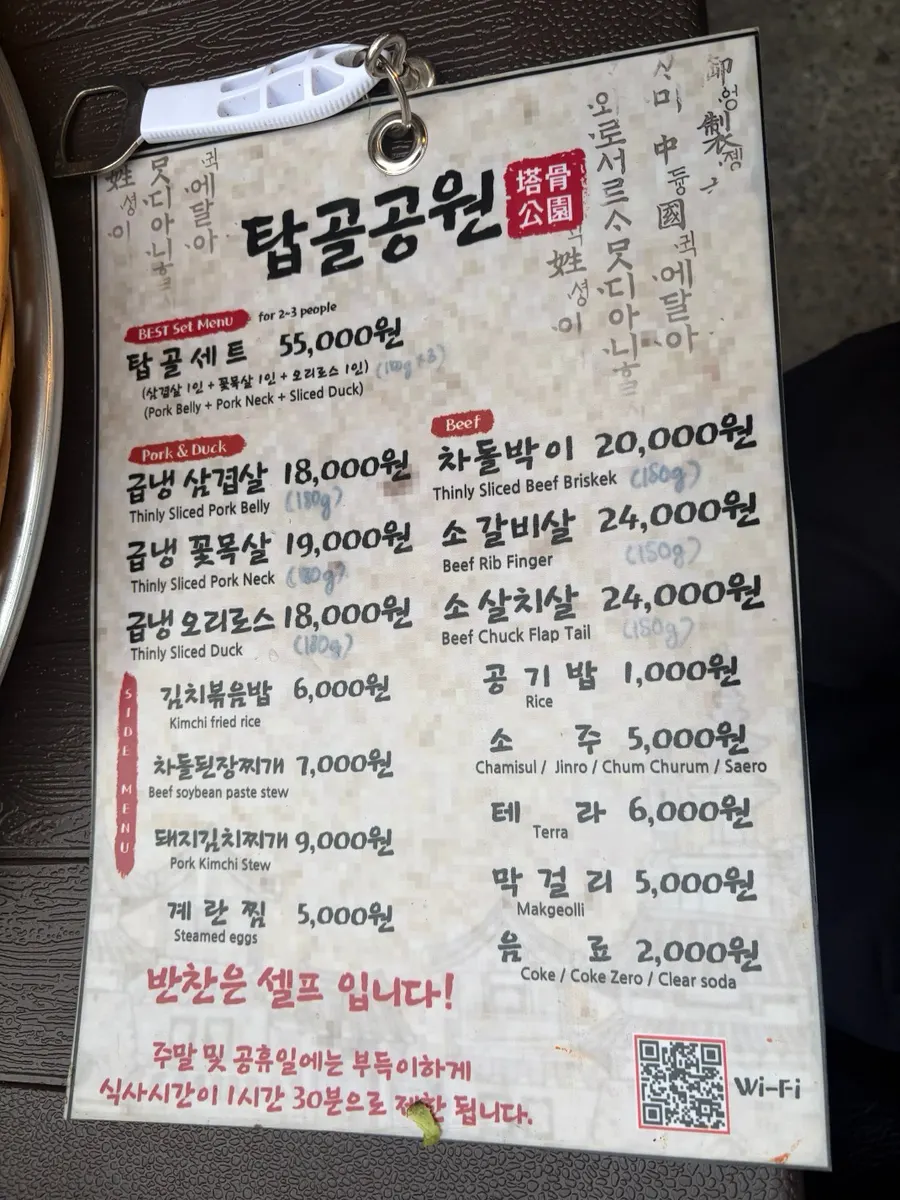 탑골공원
塔骨
公園
BEST Set Menu for 2~3 people
탑골세트 55,000원
(삼겹살 1인 + 꽃목살 1인 + 오리로스 1인)
(Pork Belly + Pork Neck + Sliced Duck)
Pork & Duck
급냉 삼겹살 18,000원
Thinly Sliced Pork Belly (180g)
급냉 꽃목살 19,000원
Thinly Sliced Pork Neck (180g)
급냉 오리로스 18,000원
Thinly Sliced Duck (180g)
Beef
차돌박이 20,000원
Thinly Sliced Beef Briskek (150g)
소 갈비살 24,000원
Beef Rib Finger (150g)
소 살치살 24,000원
Beef Chuck Flap Tail (150g)
SIDE MENU
김치볶음밥 6,000원
Kimchi fried rice
차돌된장찌개 7,000원
Beef soybean paste stew
돼지김치찌개 9,000원
Pork Kimchi Stew
계란찜 5,000원
Steamed eggs
공기밥 1,000원
Rice
소주 5,000원
Chamisul / Jinro / Chum Churum / Saero
테라 6,000원
Terra
막걸리 5,000원
Makgeolli
음료 2,000원
Coke / Coke Zero / Clear soda
반찬은 셀프 입니다!
주말 및 공휴일에는 부득이하게
식사시간이 1시간 30분으로 제한 됩니다.
Wi-Fi